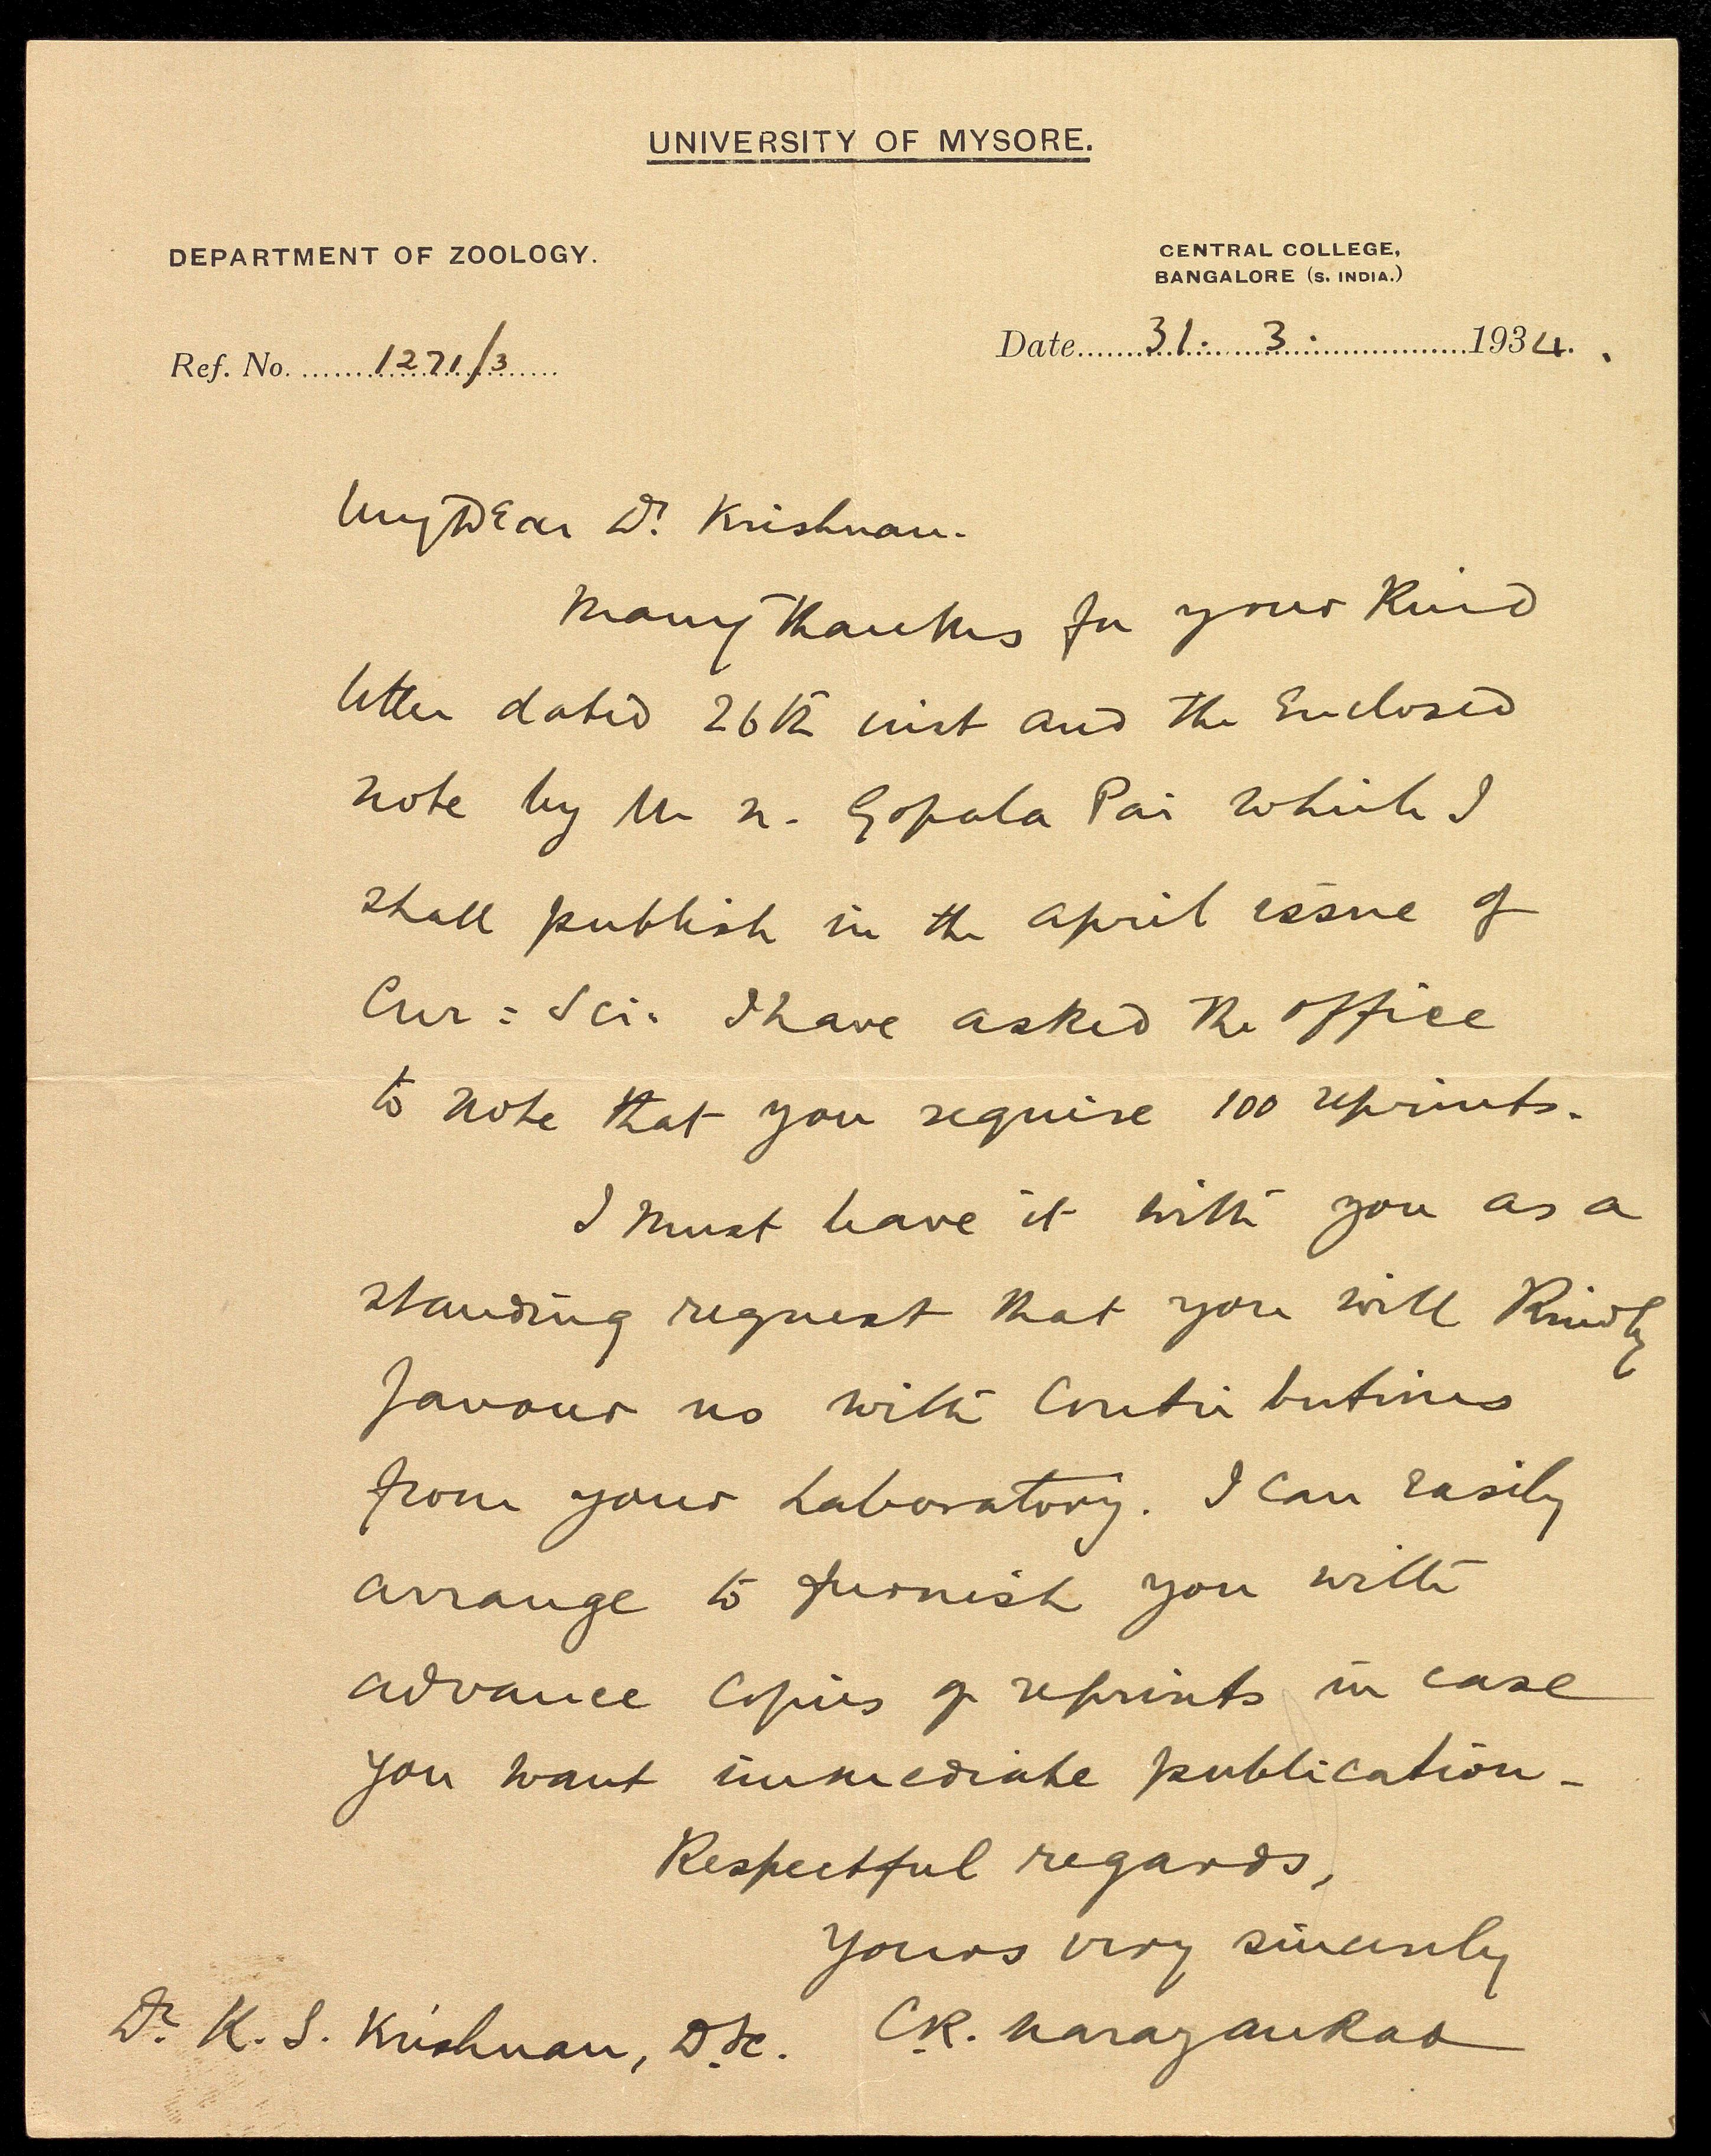 UNIVERSITY OF MYSORE.
DEPARTMENT OF ZOOLOGY.
CENTRAL COLLEGE,
BANGALORE (S. INDIA.)
Ref. No. 1271/3
Date 31. 3. 1934.
My Dear Dr. Krishnan.
Many thanks for your kind
letter dated 26th inst and the enclosed
note by Mr N. Gopala Pai which I
shall publish in the April issue of
Cur: Sci. I have asked the office
to note that you require 100 reprints.
I must leave it with you as a
standing request that you will kindly
favour us with contributions
from your Laboratory. I can easily
arrange to furnish you with
advance copies of reprints in case
you want immediate publication.
Respectful regards,
Yours very sincerely
C.R. Narayan Rao
Dr. K. S. Krishnan, D.Sc.